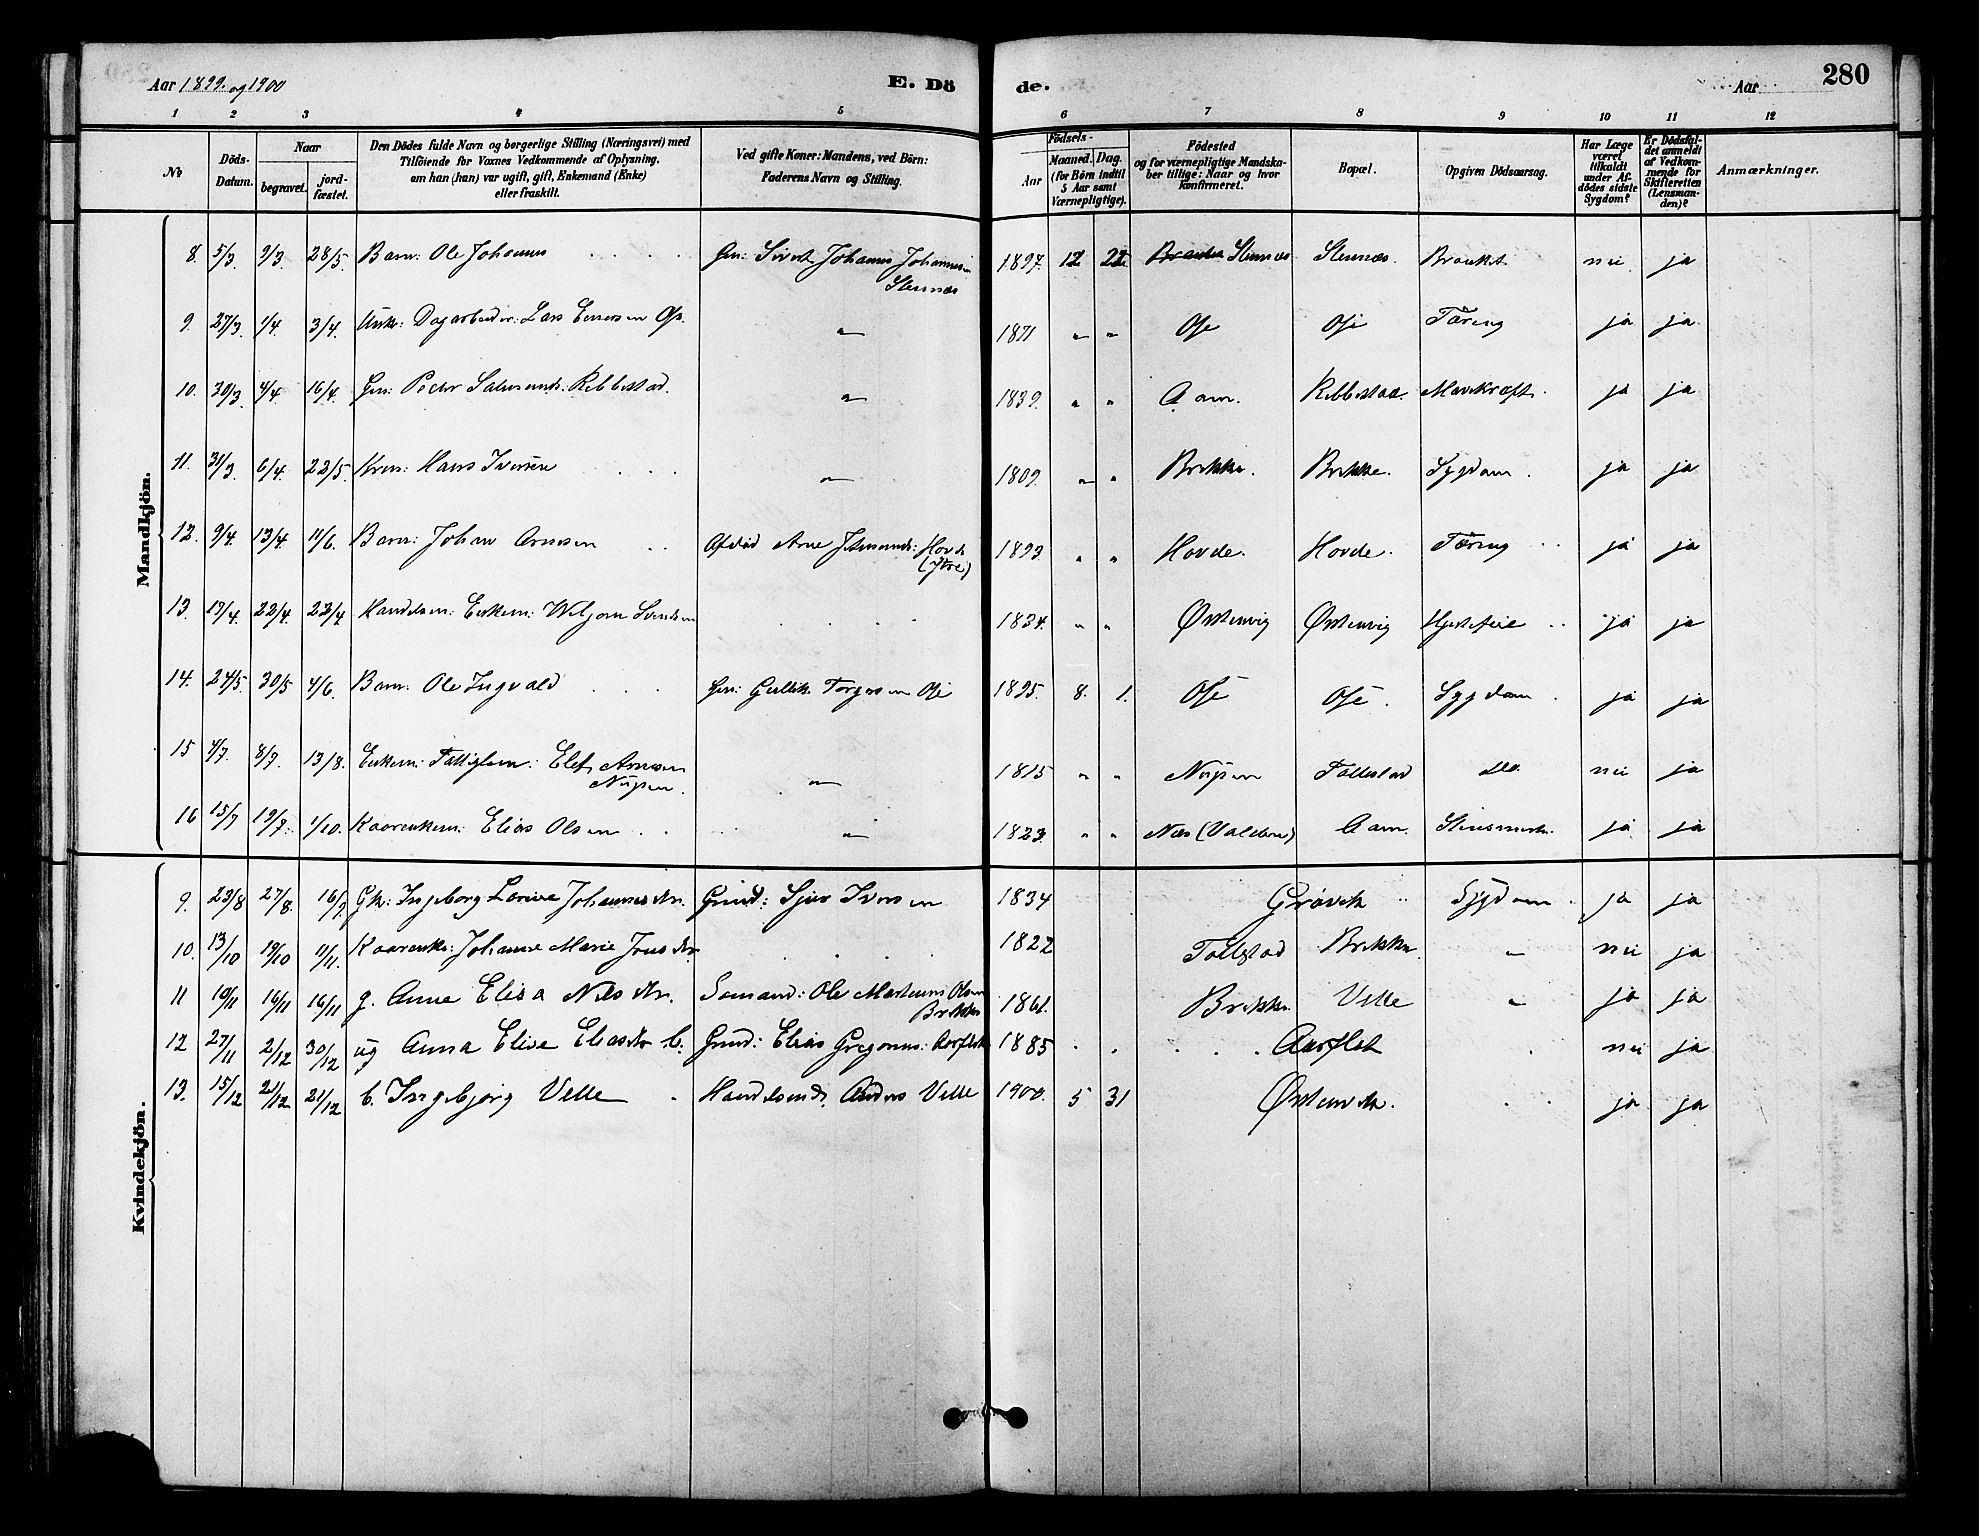 Aar 1899 og 1900
E. Dö
de.
Aar
280
1 2 3 4 5 6 7 8 9 10 11 12
No
Döds-Datum.
Naar
begravet.
jord-fæstet.
Den Dödes fulde Navn og borgerlige Stilling (Næringsvei) med
Tilföiende for Voxnes Vedkommende af Oplysning,
om han (hun) var ugift, gift, Enkemand (Enke)
eller fraskilt.
Ved gifte Koner: Mandens, ved Börn:
Faderens Navn og Stilling.
Födsels-
Aar
Maaned.
Dag.
(for Börn indtil
5 Aar samt
Værnepligtige).
Födested
og for værnepligtige Mandska-
ber tillige: Naar og hvor
konfirmeret.
Bopæl.
Opgiven Dödsaarsag.
Har Læge
været
tilkaldt
under Af-
dödes sidste
Sygdom?
Er Dödsfal-
det anmeldt
af Vedkom-
mende for
Skifteretten
(Lensman-
den)?
Anmærkninger.
Mandkjön.
8. 5/3. 9/3. 28/5. Barn: Ole Johannes Gm: Sivert Johannes Johannessen 1897. 12 22 Stennes Stennes. Brankt nei ja
Stennes
9. 27/3. 1/4. 3/4. Lars Ose. " 1871 " " Ose Ose Tæring ja ja
10. 30/3. 4/4. 16/4. Gm: Peder Ribbestad. " 1839. " " Aam. Ribbestad. Mavekræft. ja ja
11. 31/3. 6/4. 22/5. Hans Iversen " 1809. " " Brekke. Brekke. Sygdom. ja ja
12. 9/4. 13/4. 11/6. Barn: Johan Arnesen Afdød Arne Hovde 1893 " " Hovde. Hovde. Tæring ja ja
(Ytre)
13. 17/4. 22/4. 23/4 Handelsm: Enkem: Østenvig Østenvig 1834. " " Hjertefeil ja ja
14. 24/5. 30/5 4/6. Barn: Ole Ingvald Gm: Gullik Torgersen Ose 1895. 8. 1. Ose Ose. Sygdom. ja ja
15 4/7. 8/7. 13/8. Enkem: Fattiglem: Elef Arnesen " 1815 " " Nupen Follestad do. nei ja
Nupen.
16 15/7 19/7. 1/10. Kaarenkem: Elias Olsen " 1823. " " Nes (Valderø) Aam. ja ja
Kvindekjön.
9. 23/8 27/8. 16/9. Gk: Ingeborg Lovise Johannesdtr. Grmd: Sjur Iversen 1834 Grøvik Sygdom. ja ja
10. 13/10 19/10 11/11. Kaarenke: Johanne Marie Jonsdtr. 1822 Follestad Brekke. " nei ja
11 10/11 16/11 16/11 g. Anne Elisa Nilsdtr. Sømand: Ole Martinus Olsen 1861. Brekke Velle " ja ja
Brekke
12 27/11 2/12 30/12 ug Anna Elise Eliasdtr b: Grmd: Elias Gregorius: Aarflot 1885 Aarflot nei ja
13. 15/12 21/12 21/12 b. Ingebjørg Velle Handelsmd. Anders Velle 1900. 5 31 Østenvik. ja ja